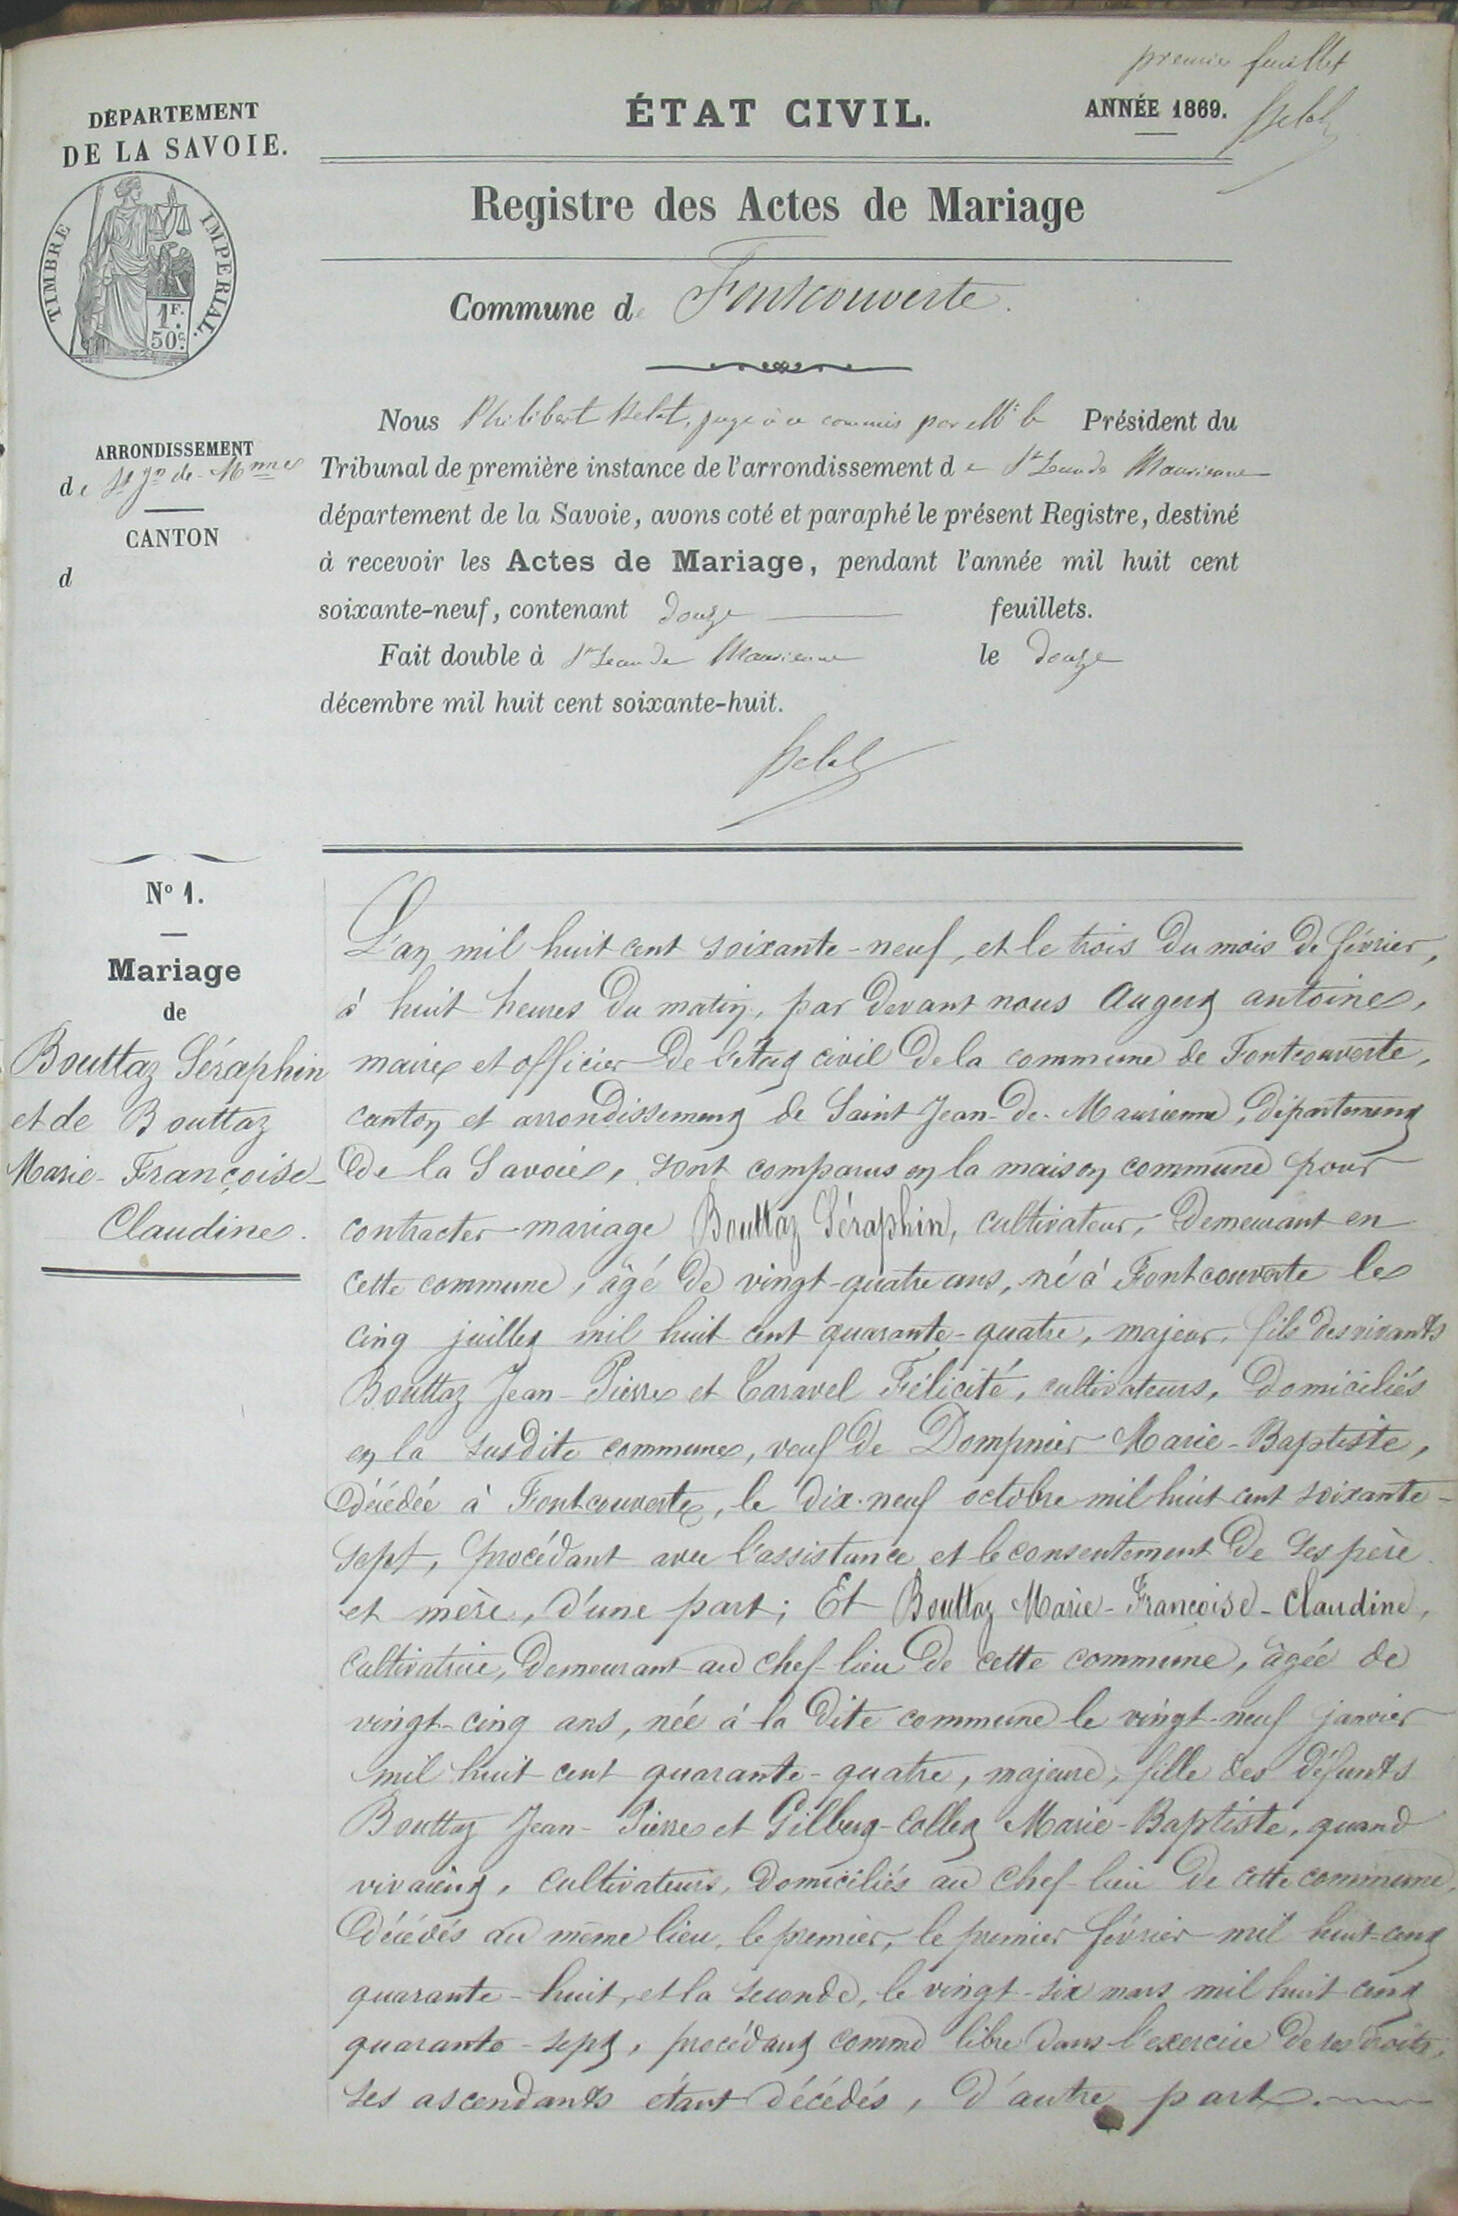 premier feuillet
DÉPARTEMENT
DE LA SAVOIE.
ÉTAT CIVIL.
ANNÉE 1869.
TIMBRE IMPERIAL.
1F.
50c.
Registre des Actes de Mariage
Commune de Fontcouverte.
ARRONDISSEMENT
de St Jn de Mnne
CANTON
d
Nous Philibert juge à ce commis par Mr le Président du
Tribunal de première instance de l'arrondissement de St Jean de Maurienne
département de la Savoie, avons coté et paraphé le présent Registre, destiné
à recevoir les Actes de Mariage, pendant l'année mil huit cent
soixante-neuf, contenant douze feuillets.
Fait double à St Jean de Maurienne le douze
décembre mil huit cent soixante-huit.
No 1.
Mariage
de
Bouttaz Séraphin
et de Bouttaz
Marie-Françoise-
Claudine.
L'an mil huit cent soixante-neuf, et le trois du mois de février,
à huit heures du matin, par devant nous Augert antoine,
maire et officier de l'état civil de la commune de Fontcouverte,
canton et arrondissement de Saint Jean-de-Maurienne, département
de la Savoie, sont comparus en la maison commune pour
contracter mariage Bouttaz Séraphin, cultivateur, demeurant en
cette commune, âgé de vingt-quatre ans, né à Fontcouverte le
cinq juillet mil huit cent quarante-quatre, majeur, fils des vivants
Bouttaz Jean-Pierre et Caravel Félicité, cultivateurs, domiciliés
en la susdite commune, veuf de Dompnier Marie-Baptiste,
décédée à Fontcouverte, le dix-neuf octobre mil huit cent soixante-
sept, procédant avec l'assistance et le consentement de ses père
et mère, d'une part; Et Bouttaz Marie-Françoise-Claudine,
cultivatrice, demeurant au chef-lieu de cette commune, âgée de
vingt-cinq ans, née à la dite commune le vingt-neuf janvier
mil huit cent quarante-quatre, majeure, fille des défunts
Bouttaz Jean-Pierre et Gilbert-Collet Marie-Baptiste, quand
vivaient, cultivateurs, domiciliés au chef-lieu de cette commune,
décédés au même lieu, le premier, le premier février mil huit-cent
quarante-huit, et la seconde, le vingt-six mars mil huit cent
quarante-sept, procédant comme libre dans l'exercice de ses droits,
ses ascendants étant décédés, d'autre part.